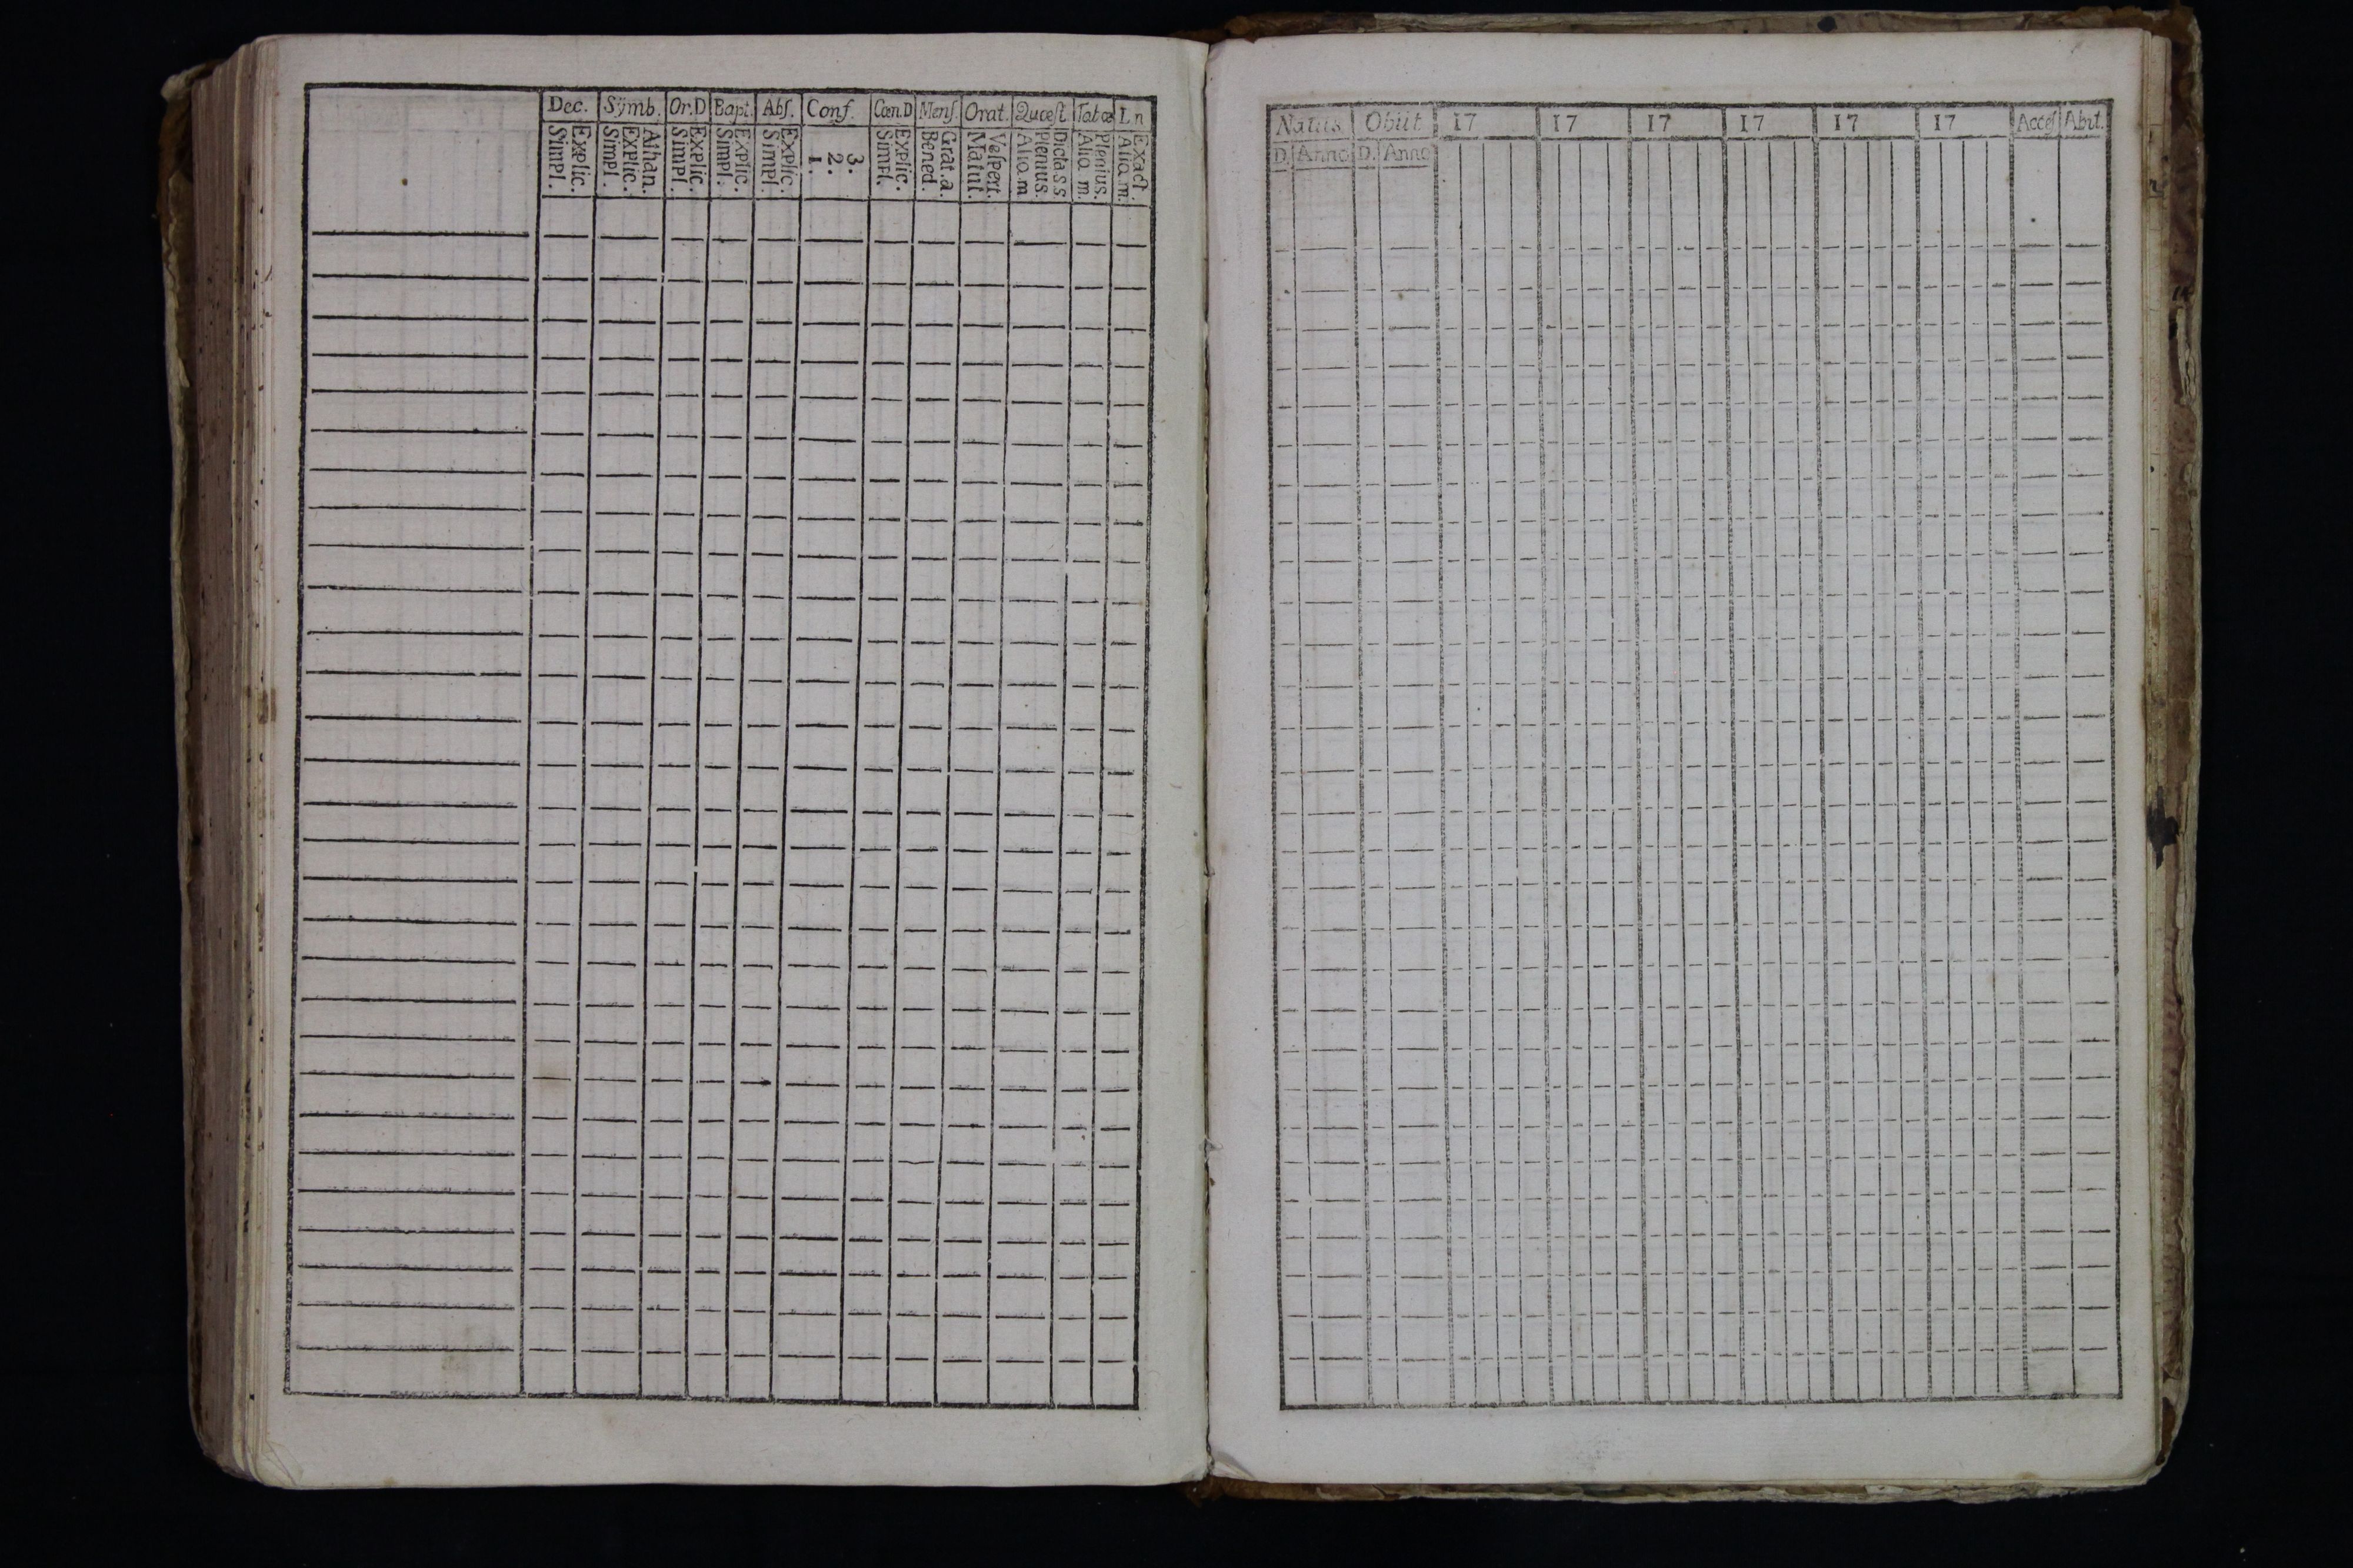 Dec. Sÿmb. Or.D Bapt. Abſ. Conf. Cœn.D Menſ. Orat. Quæſt Tabæ Ln
Simpl. Explic. Simpl. Explic. Athan. Simpl. Explic. Simpl. Explic. Simpl. Explic. 1. 2. 3. Simpl. Explic. Bened. Grat.a. Matut. Veſpert. Aliq.m Plenius. Dicta.s s Aliq.m. Plenius. Aliq.m. Exact.
Natus. Obiit. 17 17 17 17 17 17 Acceſ Abiit.
D. Anno D. Anno